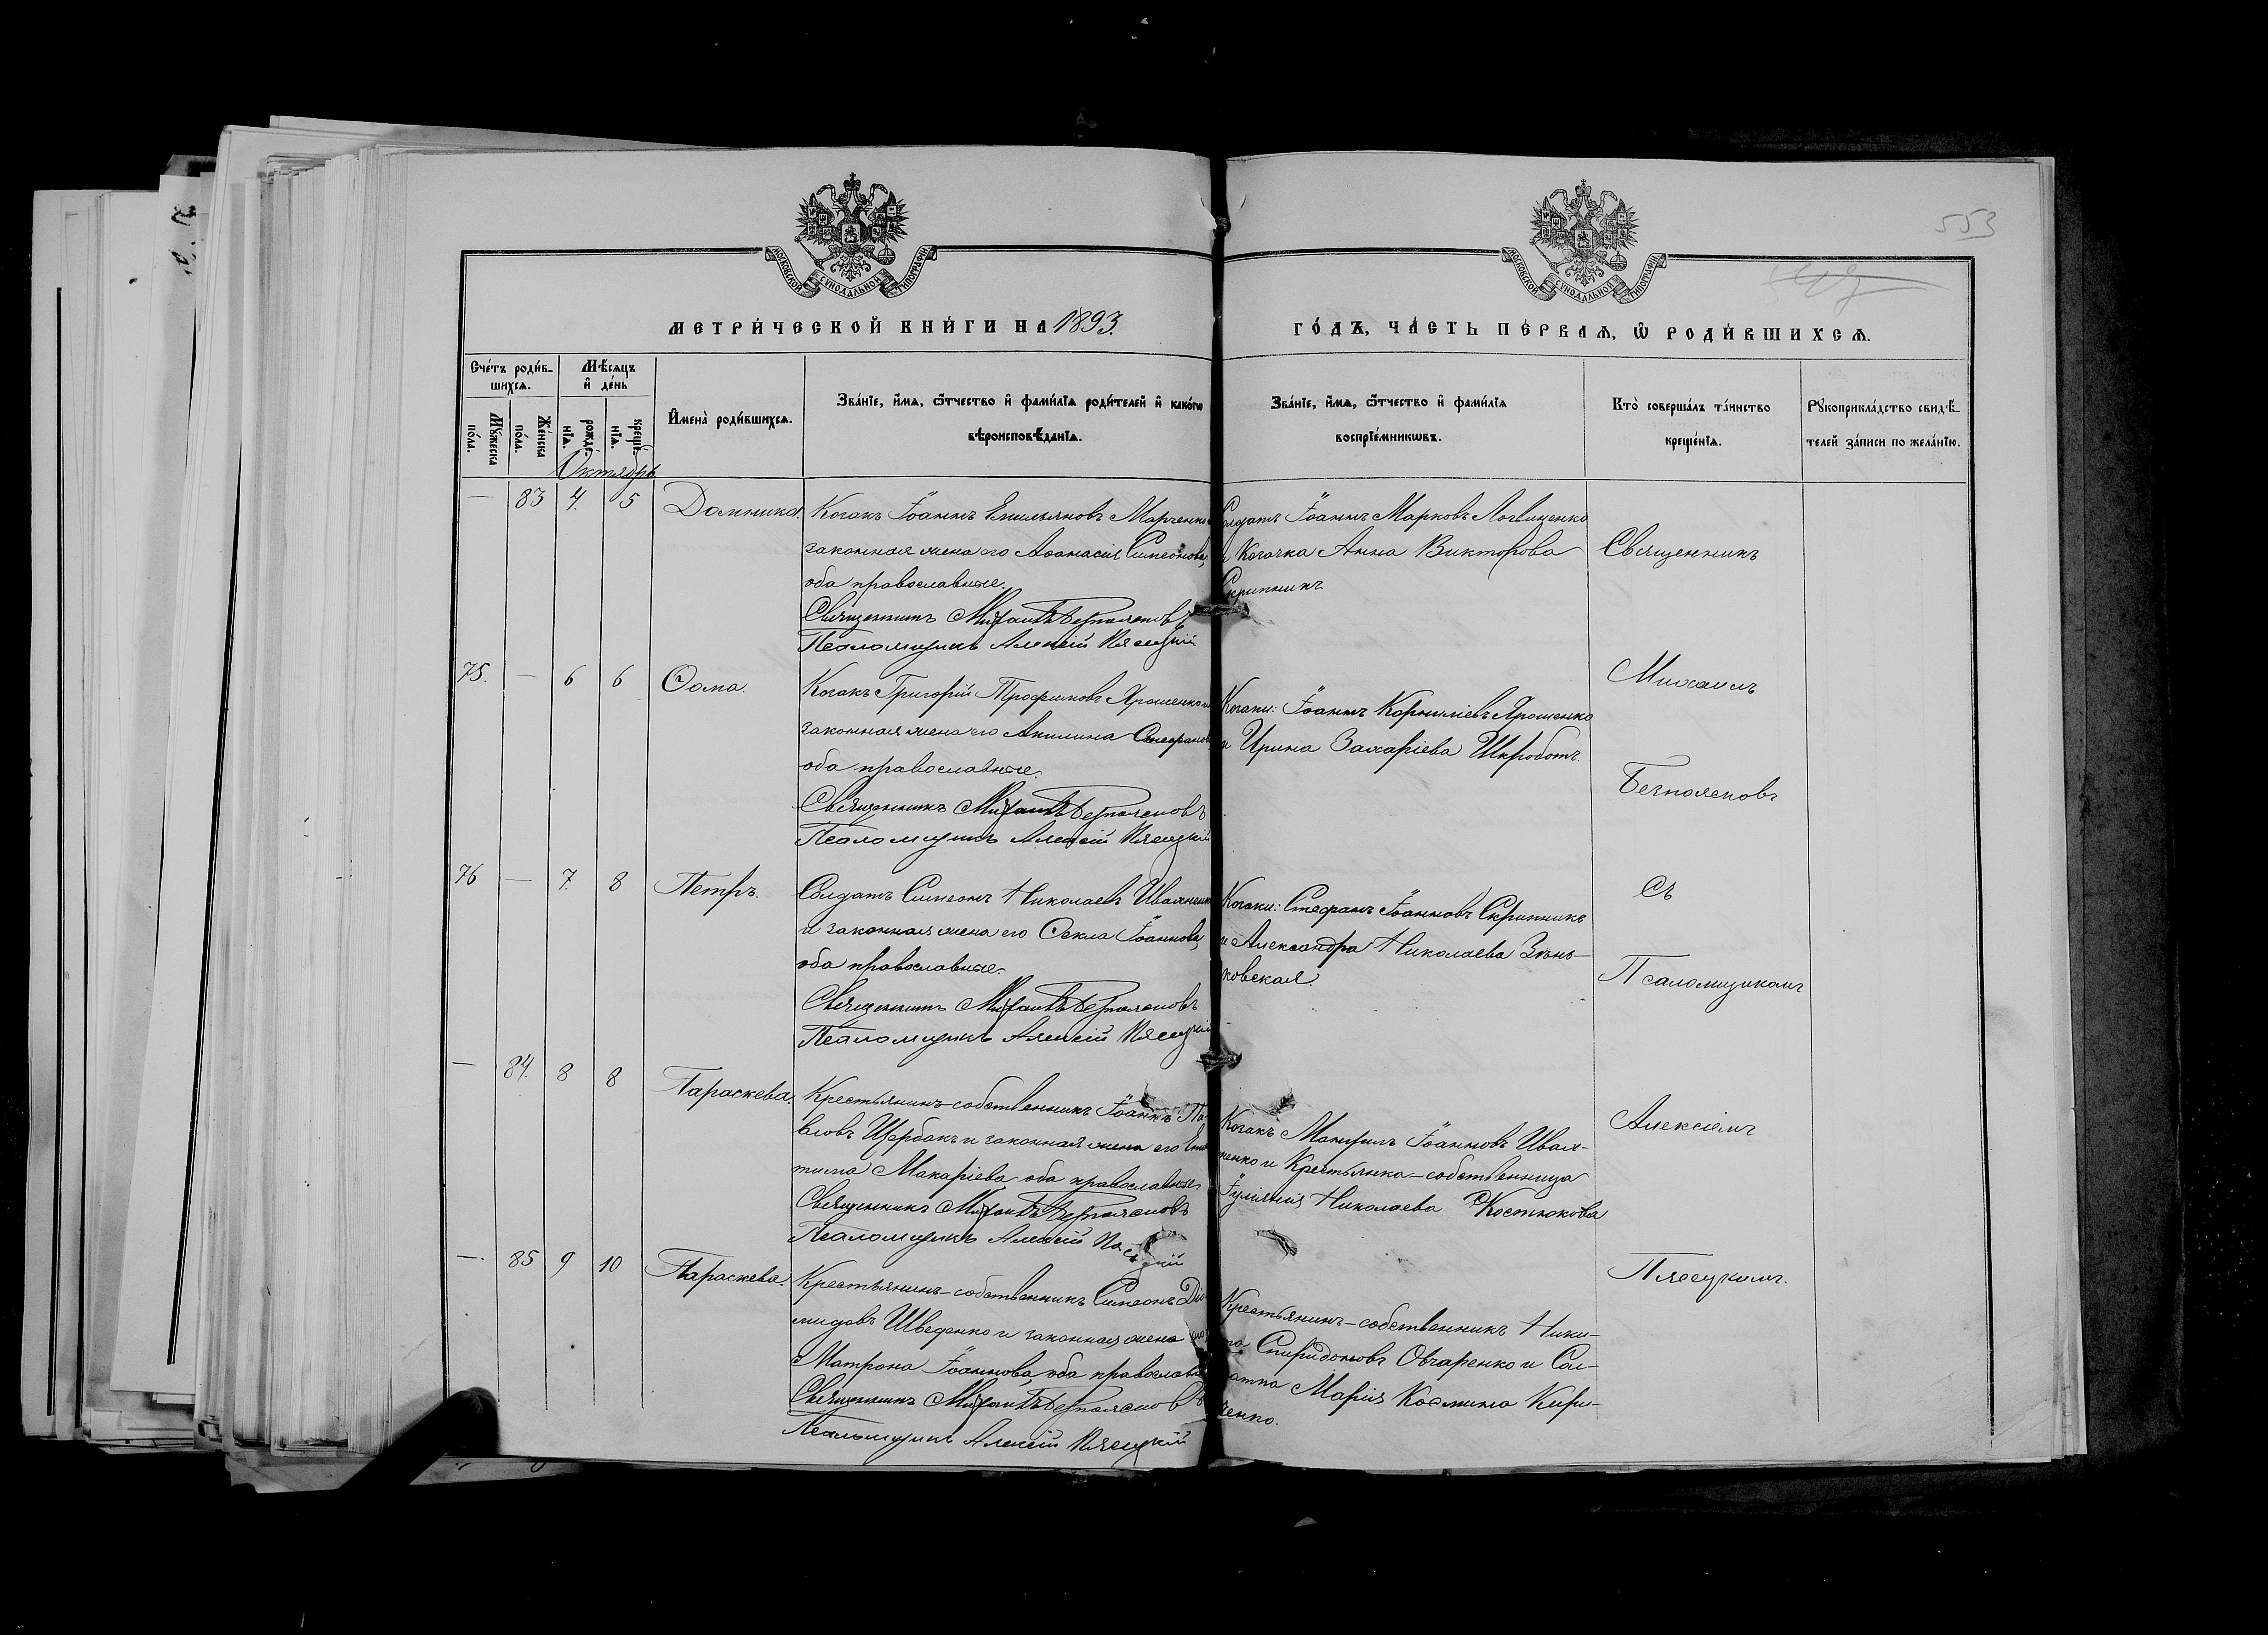 553
МОСКОВСКОЙ СѴНОДАЛЬНОЙ ТИПОГРАФІИ
МОСКОВСКОЙ СѴНОДАЛЬНОЙ ТИПОГРАФІИ
МЕТРИ́ЧЕСКОЙ КНИ́ГИ НА 1893.
ГО́ДЪ, ЧА́СТЬ ПЕ́РВАѦ, Ѡ҆ РОДИ́ВШИХСѦ.
Сче́тъ роди́в-
шихсѧ.
Мѣ́сѧцъ
и҆ де́нь
Мꙋ́жеска
по́ла.
Же́нска
по́ла.
рожде́-
нїѧ.
креще́-
нїѧ.
Имена̀ роди́вшихсѧ.
Зва́нїе, и҆́мѧ, ѻ҆́тчество и҆ фами́лїѧ роди́телей и҆ како́гѡ
вѣроисповѣ́данїѧ.
Зва́нїе, и҆́мѧ, ѻ҆́тчество и҆ фами́лїѧ
воспрїе́мникѡвъ.
Кто̀ соверша́лъ та́инство
креще́нїѧ.
Рꙋкоприкла́дство свидѣ́-
телей за́писи по жела́нїю.
Октябрь
— 83 4. 5 Домника. Козакъ Іоаннъ Емильяновъ Марченко
законная жена его Аѳанасія Симеонова,
оба православные.
Священникъ Михаилъ Безпоясовъ
Псаломщикъ Алексій Пясецкій
Солдатъ Іоаннъ Марковъ Логвиненко
и Козачка Анна Викторова
Скрипникъ.
75. — 6 6 Ѳома. Козакъ Григорій Трофимовъ Ярошенко и
законная жена его Акилина Стефанов
оба православные.
Священникъ Михаилъ Безпоясовъ
Псаломщикъ Алексій Пясецкій
Козаки: Іоаннъ Корниліевъ Ярошенко
и Ирина Захаріева Шкроботъ.
76 — 7. 8 Петръ. Солдатъ Симеонъ Николаевъ Иваненко
и законная жена его Ѳекла Іоаннова,
оба православные.
Священникъ Михаилъ Безпоясовъ
Псаломщикъ Алексій Пясецкій
Козаки: Стефанъ Іоанновъ Скрипникъ
и Александра Николаева Зѣнь-
ковская.
— 84. 8 8 Параскева. Крестьянинъ-собственникъ Іоаннъ Па-
вловъ Щербакъ и законная жена его
Макаріева оба православные.
Священникъ Михаилъ Безпоясовъ
Псаломщикъ Алексій
Козакъ Іоанновъ Ивая-
ненко и Крестьянка-собственница
Іуліянія Николаева Костюкова
— 85 9 10 Параскева. Крестьянинъ-собственникъ Симеонъ Діо-
мидовъ Шведенко и законная жена его
Матрона Іоаннова, оба православные
Священникъ Михаилъ Безпоясовъ
Псаломщикъ Алексій Пясецкій
Крестьянинъ-собственникъ Ники-
та Спиридоновъ Овчаренко и Сол-
датка Марія Космина Кири-
ченко.
Священникъ
Михаилъ
Безпоясовъ
Съ
Псаломщикомъ
Алексіемъ
Пясецкимъ.